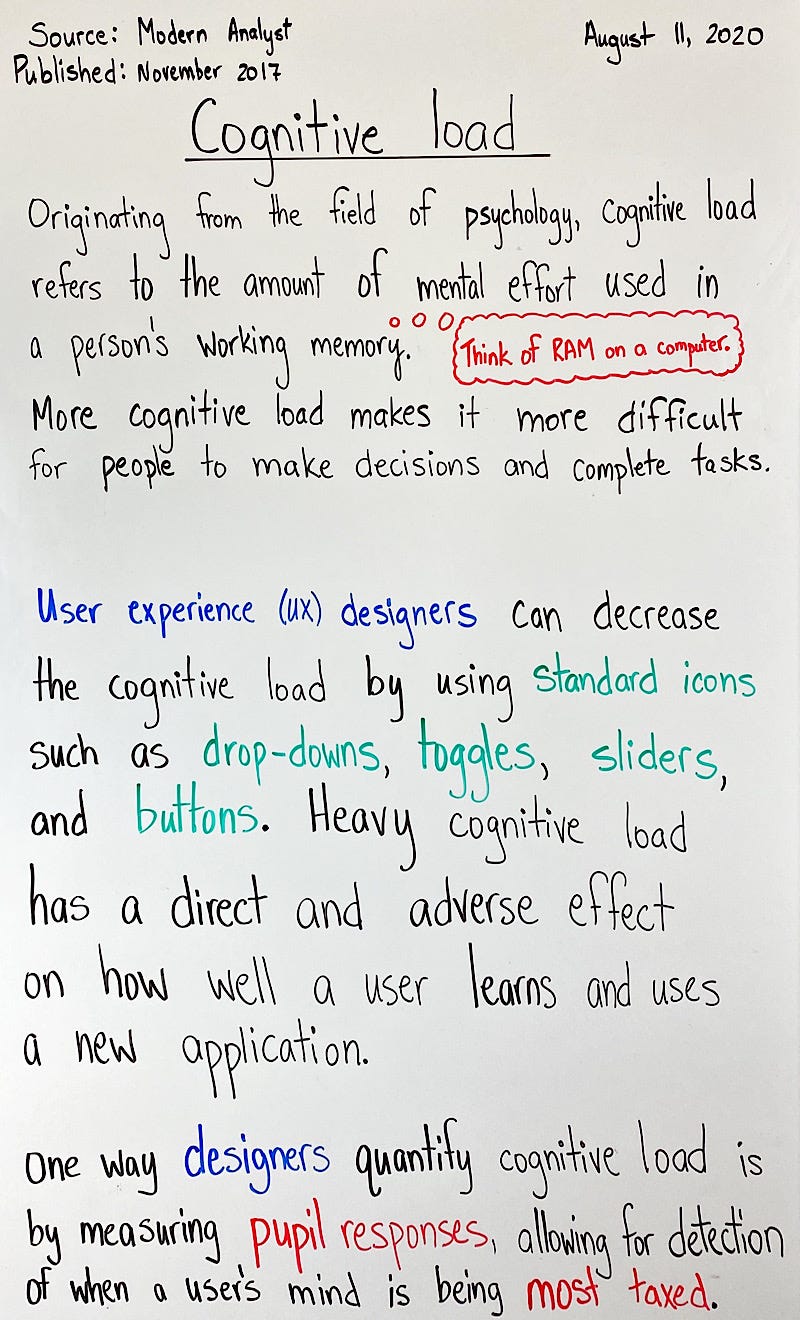 Source: Modern Analyst
August 11, 2020
Published: November 2017
Cognitive load
Originating from the field of psychology, cognitive load
refers to the amount of mental effort used in
a person's working memory.
Think of RAM on a computer.
More cognitive load makes it more difficult
for people to make decisions and complete tasks.
User experience (UX) designers can decrease
the cognitive load by using standard icons
such as drop-downs, toggles, sliders,
and buttons. Heavy cognitive load
has a direct and adverse effect
on how well a user learns and uses
a new application.
One way designers quantify cognitive load is
by measuring pupil responses, allowing for detection
of when a user's mind is being most taxed.